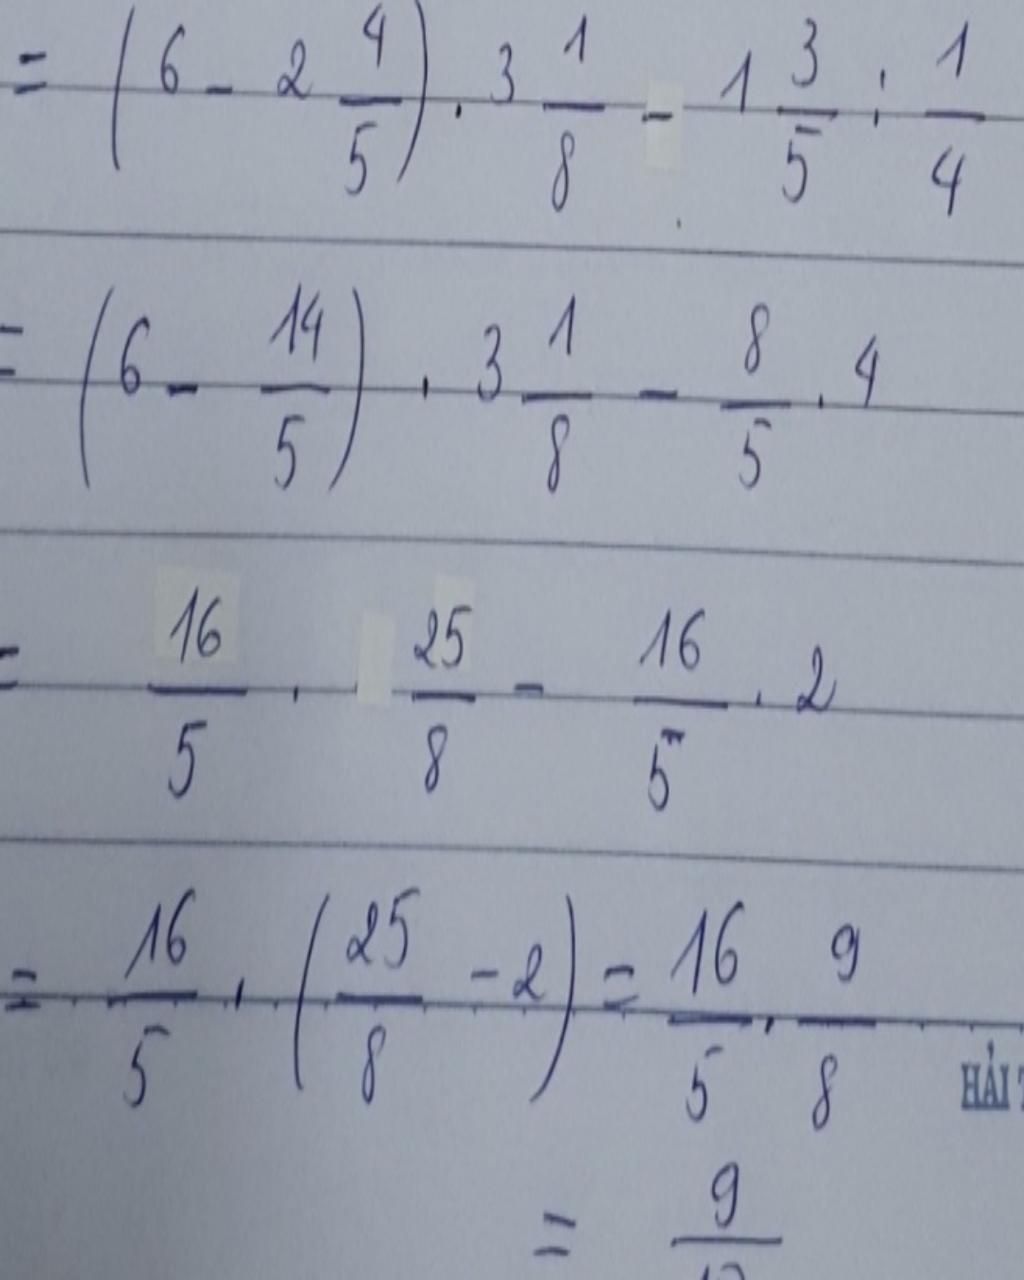 = (6 - 2 4/5) . 3 1/8 - 1 3/5 : 1/4
= (6 - 14/5) . 3 1/8 - 8/5 . 4
= 16/5 . 25/8 - 16/5 . 2
= 16/5 . (25/8 - 2) = 16/5 . 9/8
HẢI
= 9/